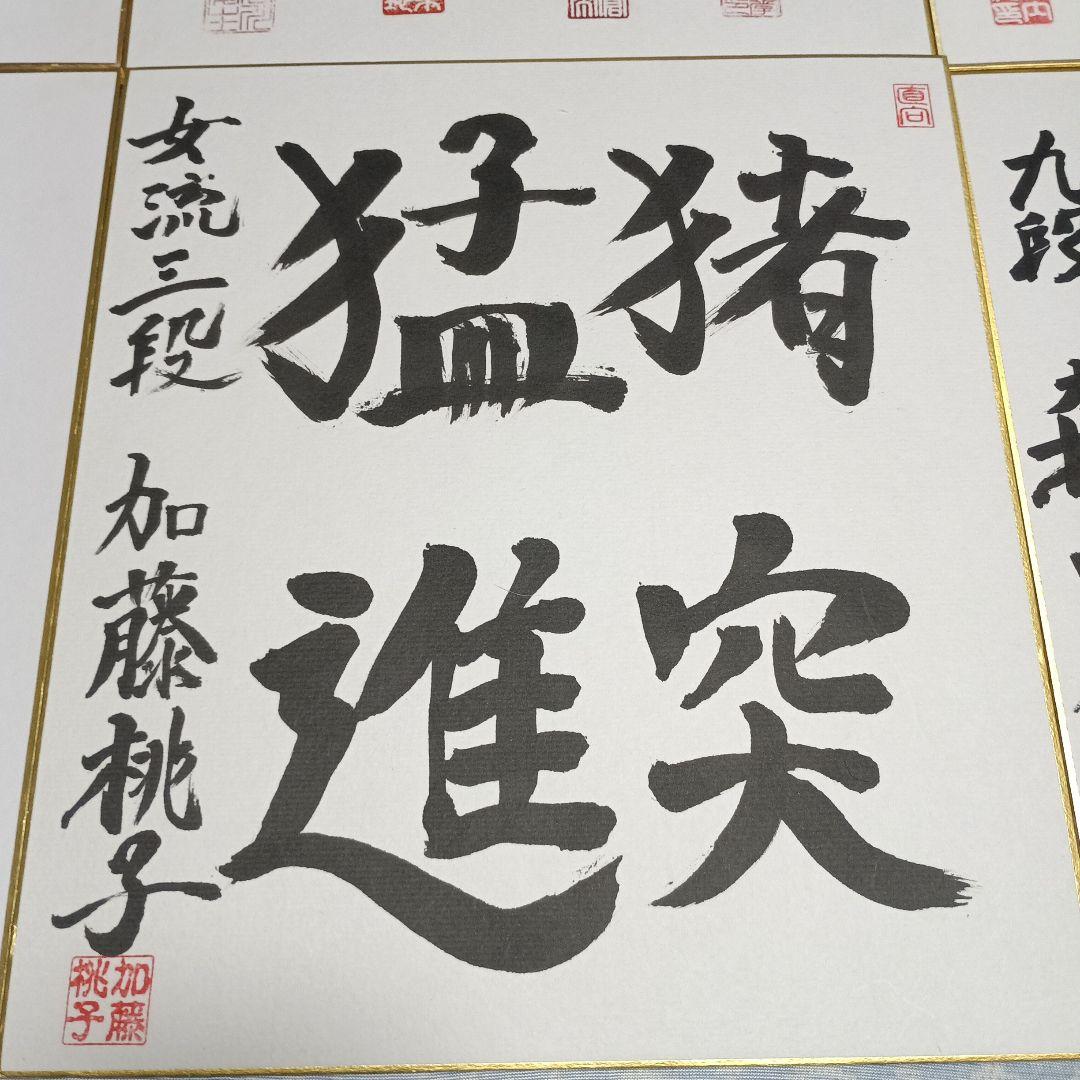 直向
猪突
猛進
女流三段 加藤桃子
加藤
桃子
九段